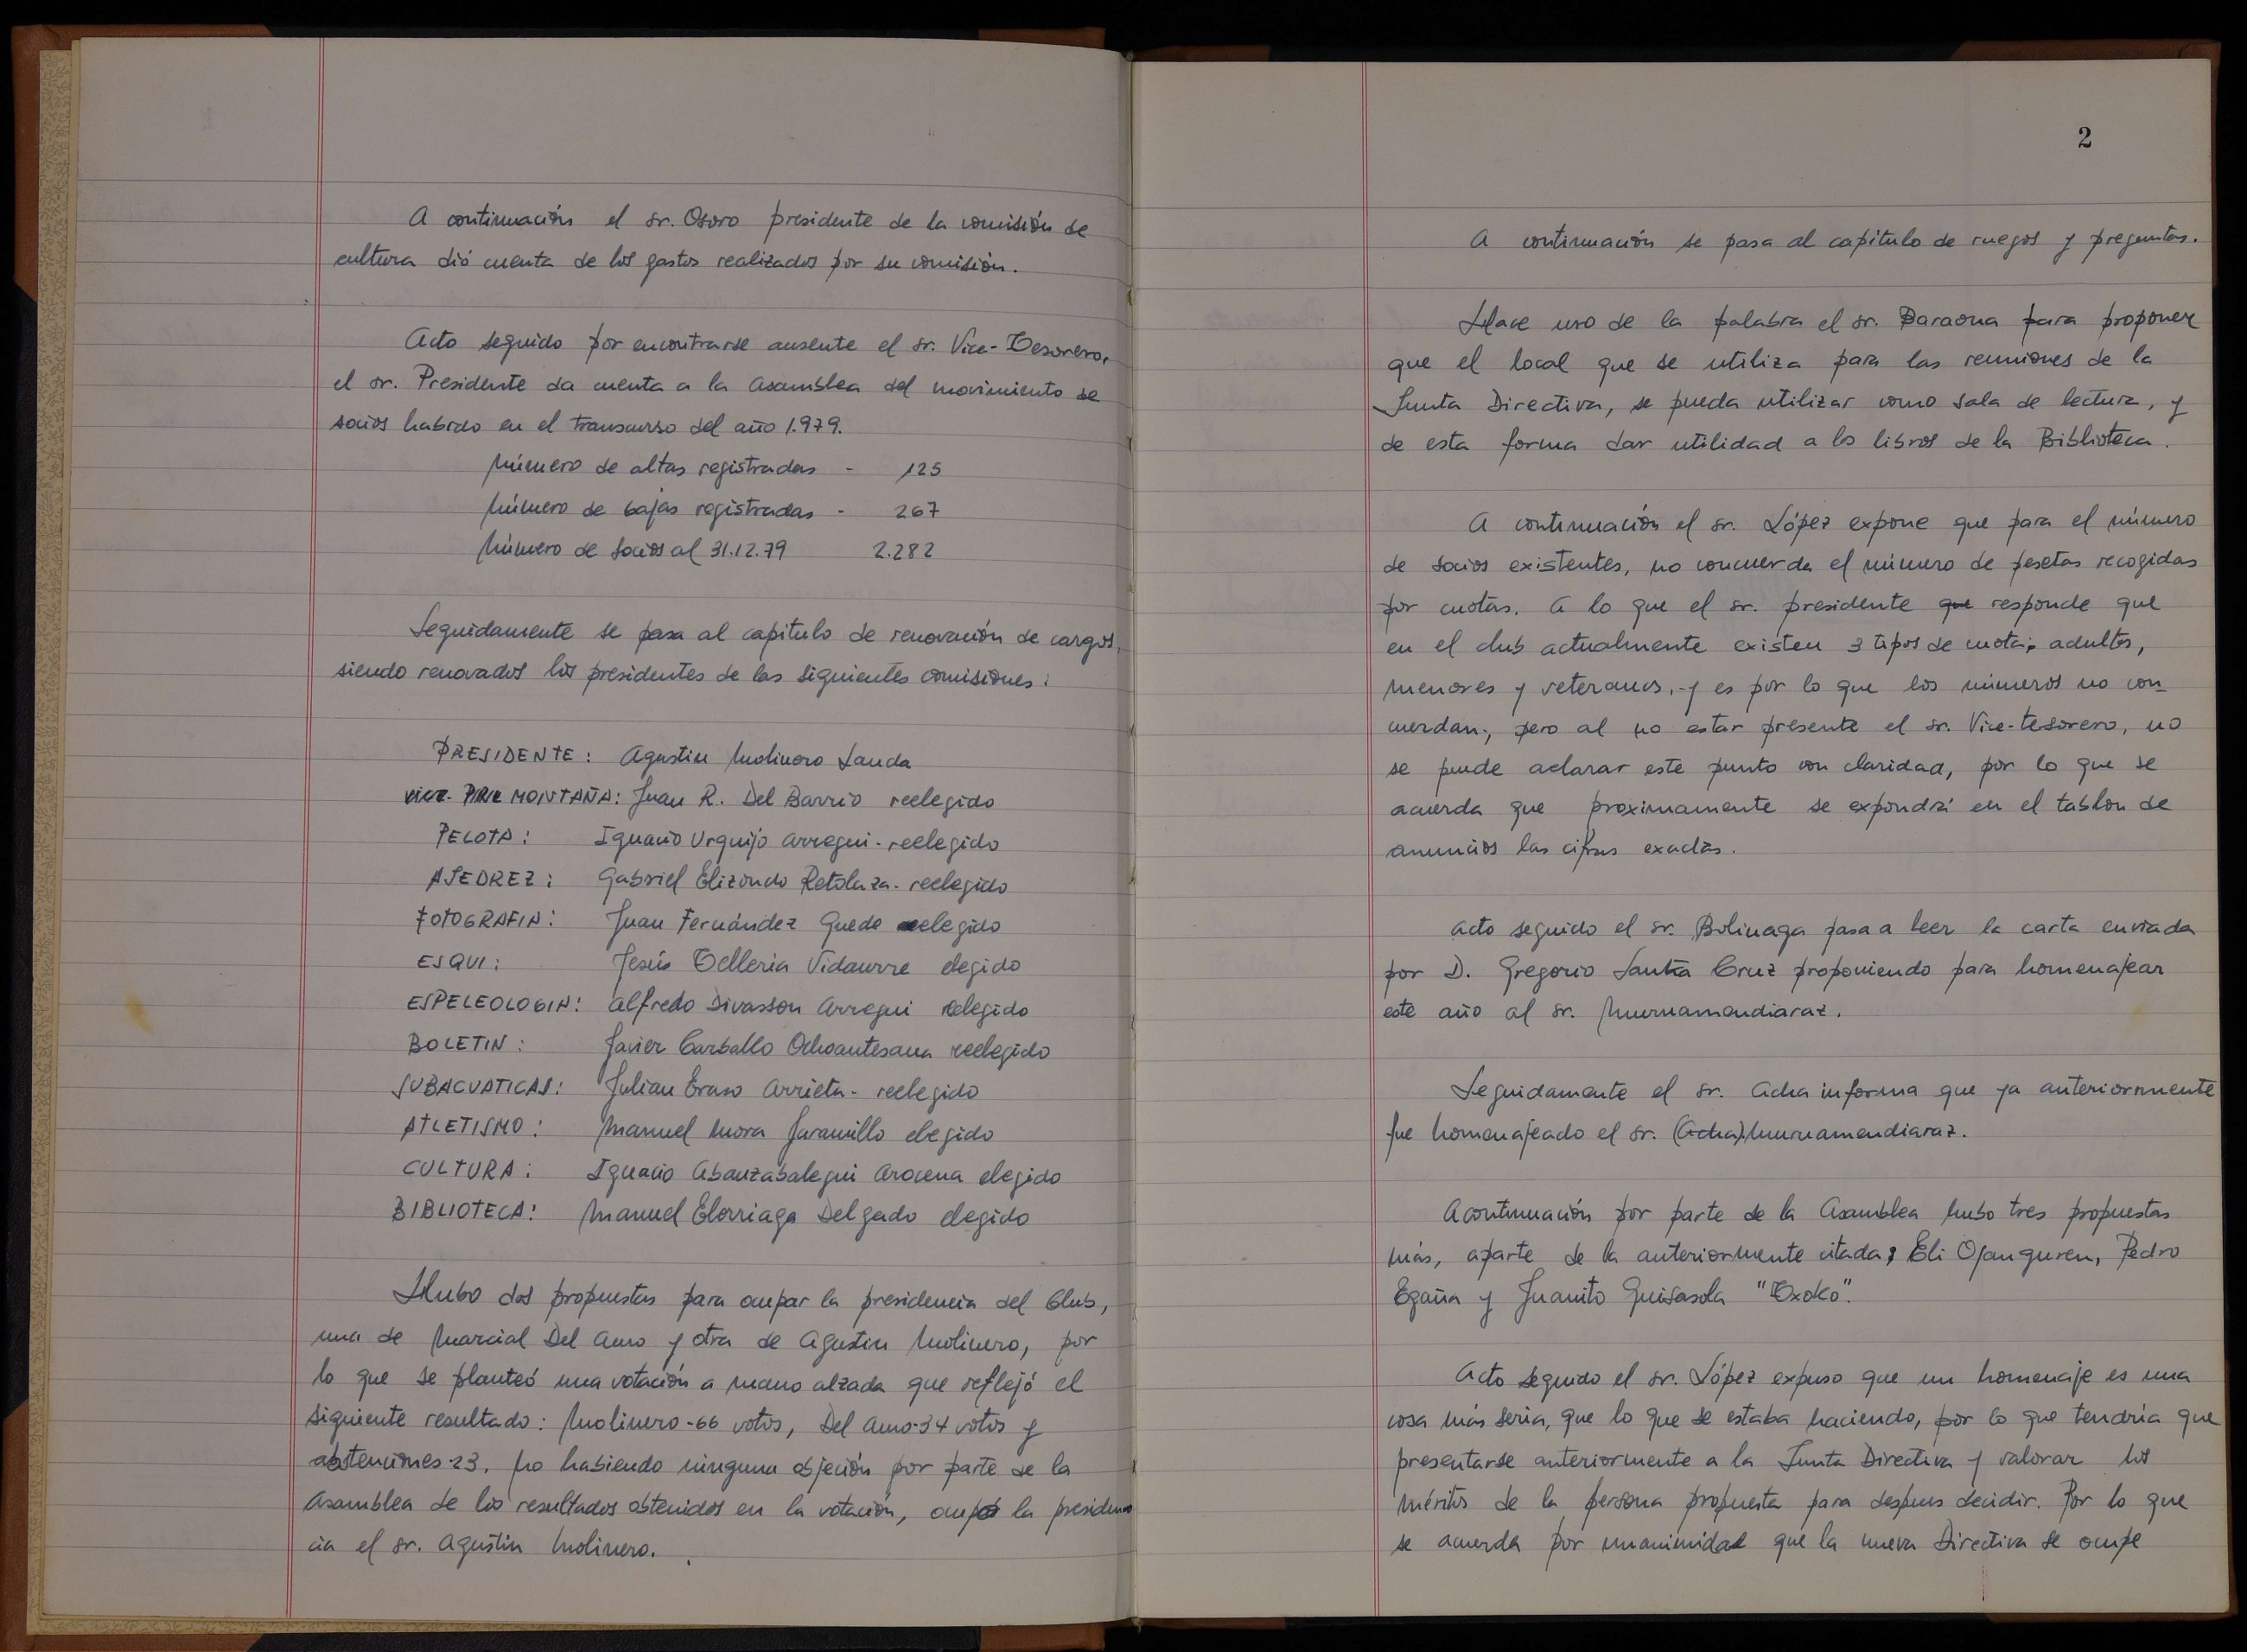 A continuación el sr. Osoro presidente de la comisión de
cultura dió cuenta de los gastos realizados por su comisión.
Acto seguido por encontrarse ausente el sr. Vice-Tesorero,
el sr. Presidente da cuenta a la Asamblea del movimiento de
socios habido en el transcurso del año 1.979.
Número de altas registradas - 125
Número de bajas registradas - 267
Número de socios al 31.12.79 2.282
Seguidamente se pasa al capitulo de renovación de cargos,
siendo renovados los presidentes de las siguientes comisiones:
PRESIDENTE: Agustin Molinero Landa
MONTAÑA: Juan R. Del Barrio reelegido
PELOTA: Ignacio Urquijo Arregui - reelegido
AJEDREZ: Gabriel Elizondo Retolaza - reelegido
FOTOGRAFIA: Juan Fernández Quede reelegido
ESQUI: Jesús Telleria Vidaurre elegido
ESPELEOLOGIA: Alfredo Divasson Arregui reelegido
BOLETIN: Javier Carballo Ochoantesana reelegido
SUBACUATICAS: Julian Eraso Arrieta - reelegido
ATLETISMO: Manuel Mora Jaramillo elegido
CULTURA: Ignacio Abanzabalegui Arocena elegido
BIBLIOTECA: Manuel Elorriaga Delgado elegido
Hubo dos propuestas para ocupar la presidencia del Club,
una de Marcial Del Amo y otra de Agustin Molinero, por
lo que se planteó una votación a mano alzada que reflejó el
siguiente resultado: Molinero-66 votos, Del Amo-34 votos y
abstenciones-23. No habiendo ninguna objeción por parte de la
Asamblea de los resultados obtenidos en la votación, ocupó la presiden
cia el sr. Agustin Molinero.
2
A continuación se pasa al capitulo de ruegos y preguntas.
Hace uso de la palabra el sr. Baraona para proponer
que el local que se utiliza para las reuniones de la
Junta Directiva, se pueda utilizar como sala de lectura, y
de esta forma dar utilidad a los libros de la Biblioteca.
A continuación el sr. López expone que para el número
de socios existentes, no concuerda el número de pesetas recogidas
por cuotas. A lo que el sr. presidente que responde que
en el club actualmente existen 3 tipos de cuota; adultos,
menores y veteranos, y es por lo que los números no con_
cuerdan, pero al no estar presente el sr. Vice-tesorero, no
se puede aclarar este punto con claridad, por lo que se
acuerda que proximamente se expondrá en el tablon de
anuncios las cifras exactas.
Acto seguido el sr. Bolinaga pasa a leer la carta enviada
por D. Gregorio Santa Cruz proponiendo para homenajear
este año al sr. Murnamendiaraz.
Seguidamente el sr. Acha informa que ya anteriormente
fue homenajeado el sr. (Acha) Murnamendiaraz.
A continuación por parte de la Asamblea hubo tres propuestas
más, aparte de la anteriormente citada; Eli Ojanguren, Pedro
Egaña y Juanito Guisasola "Txoko".
Acto seguido el sr. López expuso que un homenaje es una
cosa más seria, que lo que se estaba haciendo, por lo que tendría que
presentarse anteriormente a la Junta Directiva y valorar los
méritos de la persona propuesta para despues decidir. Por lo que
se acuerda por unanimidad que la nueva Directiva se ocupe